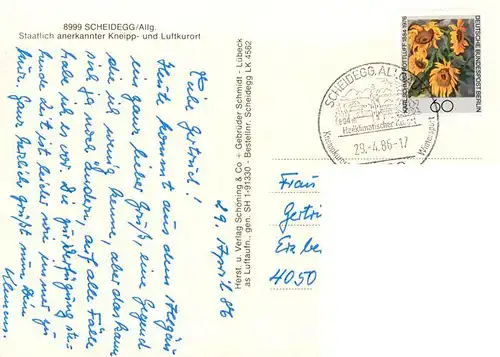 8999 SCHEIDEGG/Allg.
Staatlich anerkannter Kneipp- und Luftkurort
29. April 86
Liebe Gertrud!
Heute kommt aus dem Allgäu
ein ganz lieber Gruß, eine Gegend
die ich wenig kenne, aber das kann
sich ja noch ändern, auf alle Fälle
habe ich es vor. Die zur Verfügung ste-
hende Zeit ist leider wie immer zu
kurz. Ganz herzlich grüßt nun Dein
Klemens.
Herst. u. Verlag Schöning & Co + Gebrüder Schmidt - Lübeck
as Luftaufn., gen. SH 1-91330 - Bestellnr. Scheidegg LK 4582
DEUTSCHE BUNDESPOST BERLIN
KARL SCHMIDT-ROTTLUFF 1884-1976
60
SCHEIDEGG, ALLG
Heilklimatischer
Kneippkurort
Wintersport
29.-4.86-17
Frau
Gertru
Erzbe
4050